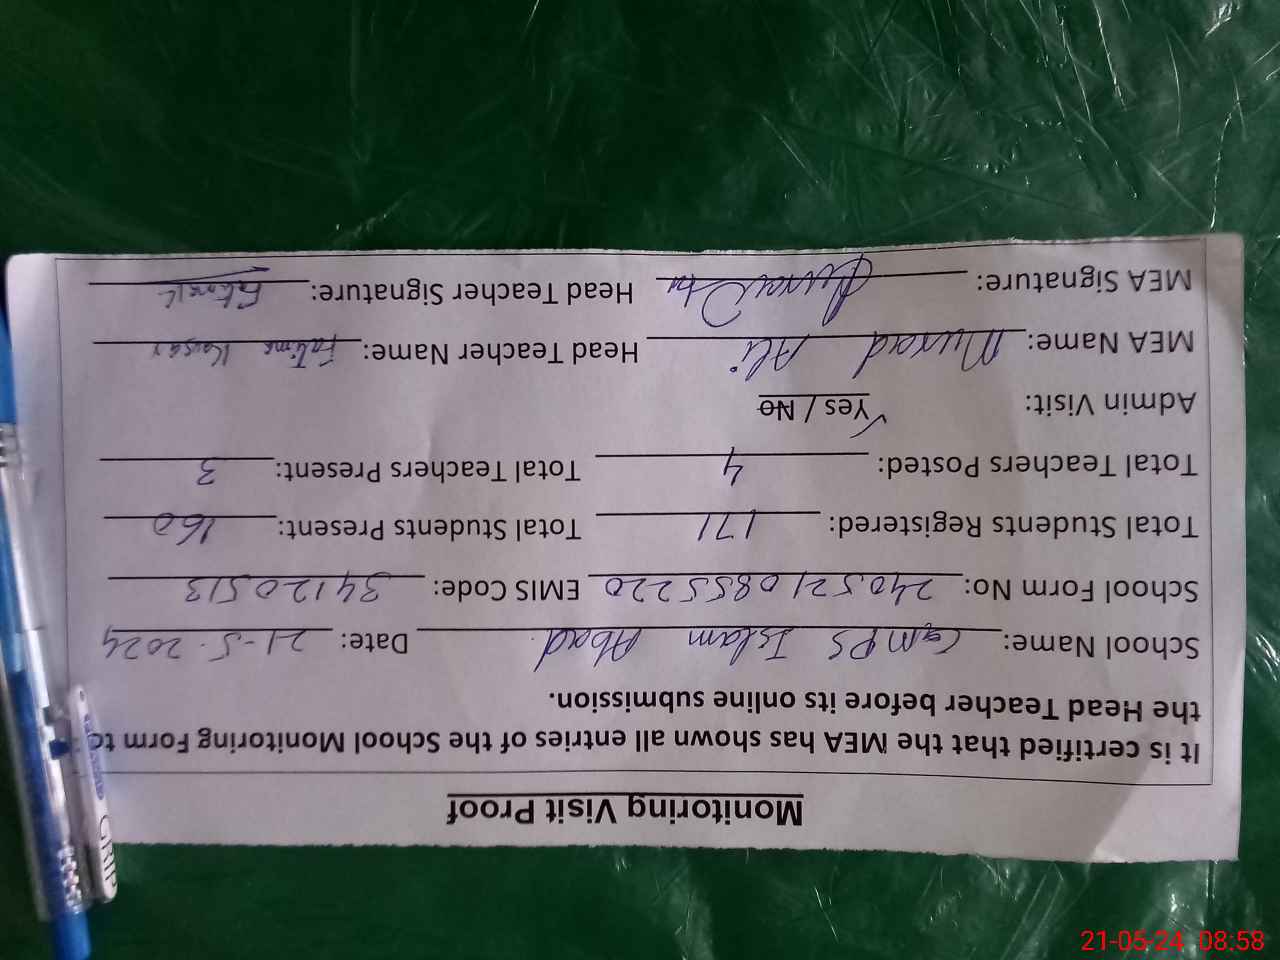 Monitoring Visit Proof
It is certified that the MEA has shown all entries of the School Monitoring Form to
the Head Teacher before its online submission.
School Name: GMPS Islam Abad. Date: 21-5-2024
School Form No: 240521 0855220 EMIS Code: 34120513
Total Students Registered: 171 Total Students Present: 160
Total Teachers Posted: 4 Total Teachers Present: 3
Admin Visit: Yes / No
MEA Name: Murad Ali Head Teacher Name: Fatima Kausar
MEA Signature: Head Teacher Signature: Fatima K
GRIP
21-05-24 08:58